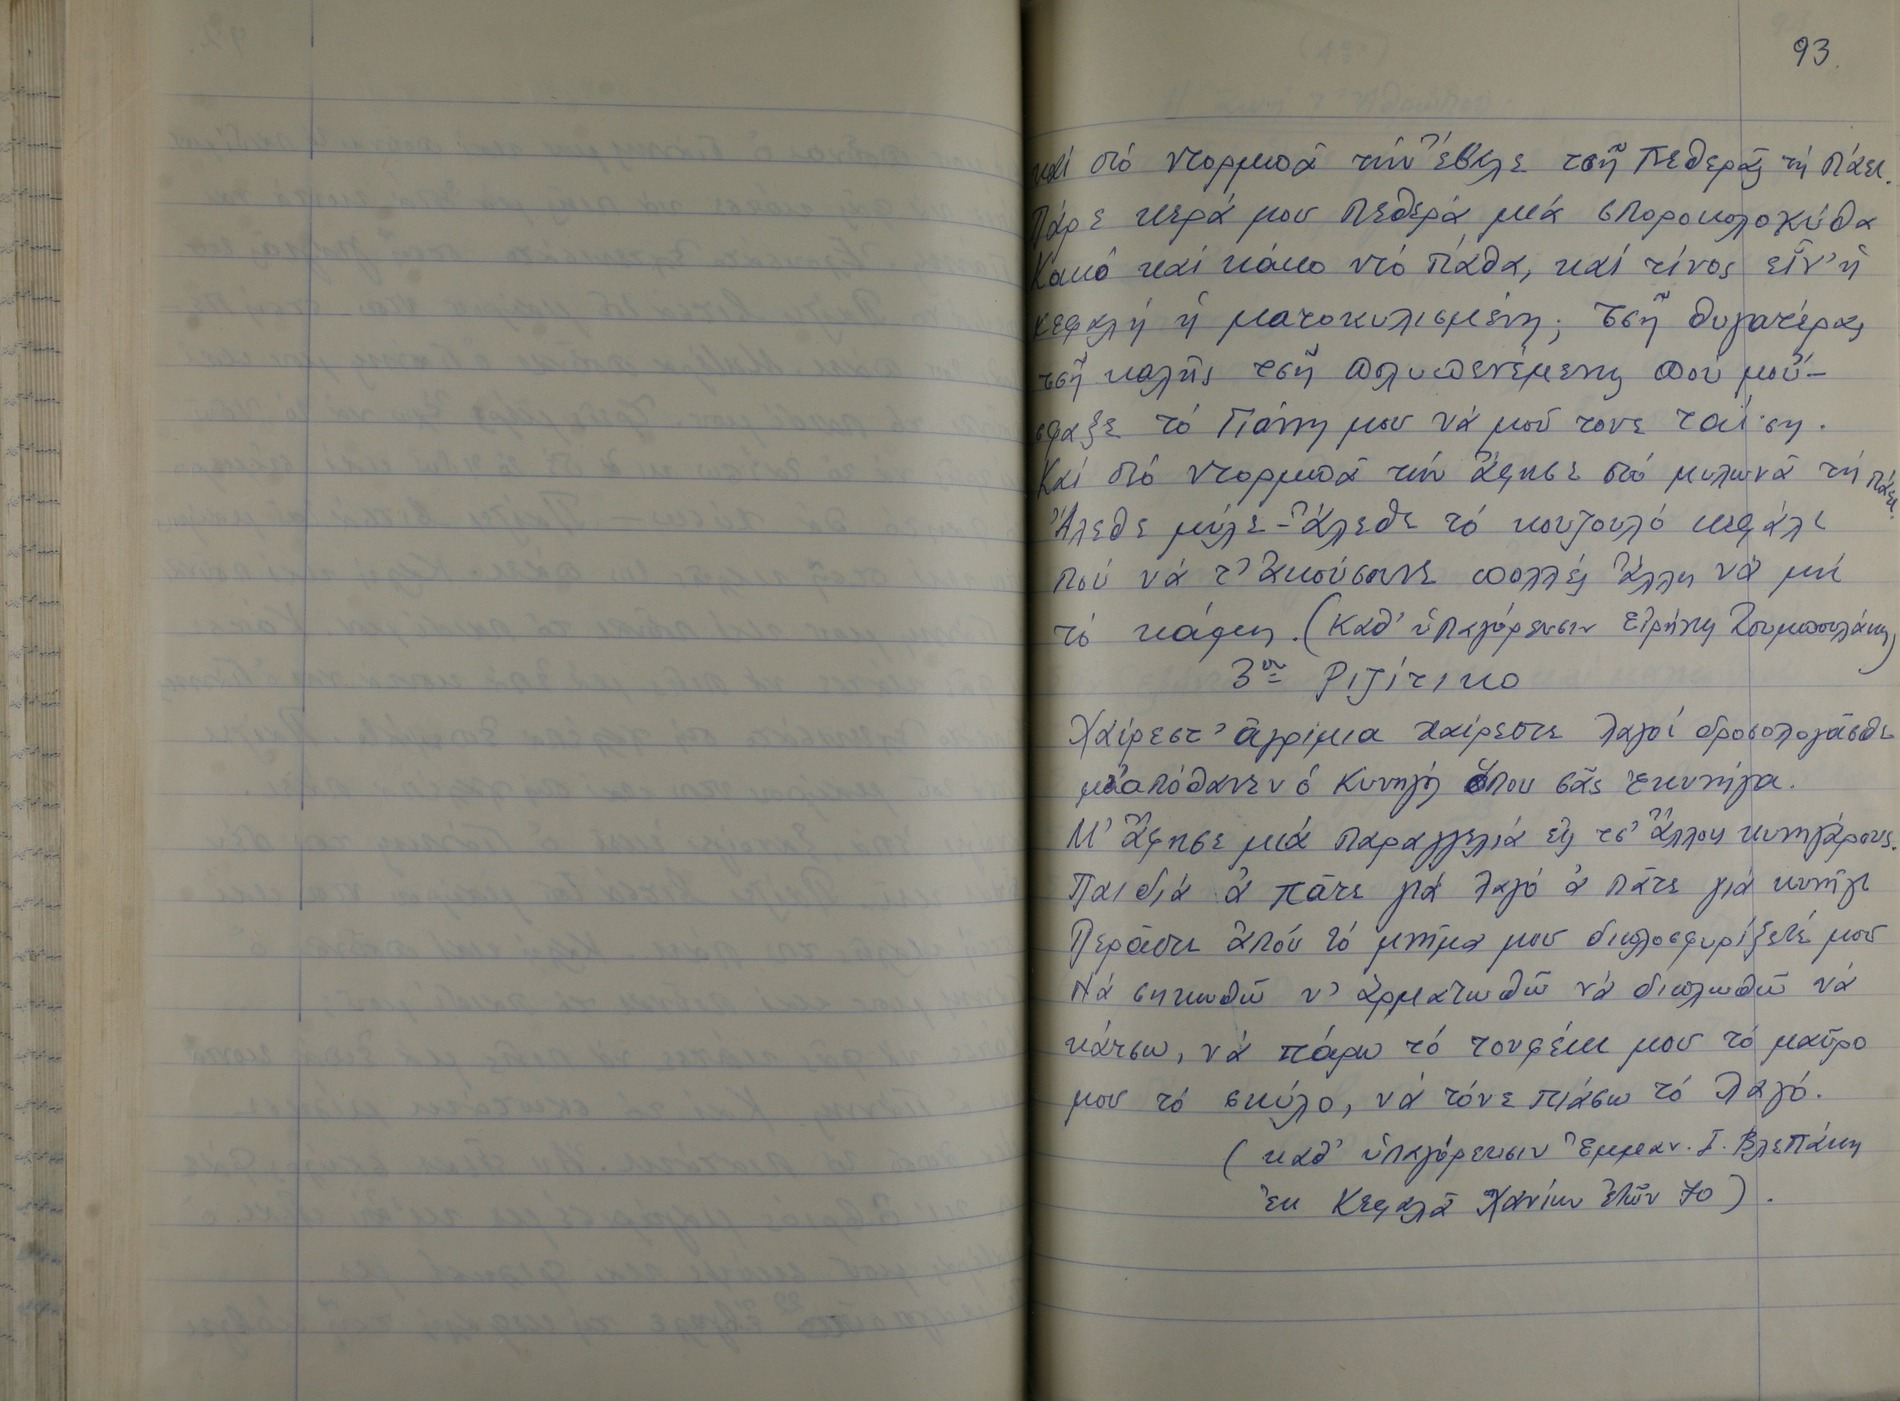 93.
καί στό ντορμπᾶ τήν ἔβαλε τσῆ πεθερᾶς τή πάει.
Πάρε κερά μου πεθερά μιά σποροκολοκύθα
Κακό καί κάκο ντό πάθα, καί τίνος εἶν' ἡ
κεφαλή ἡ ματοκυλισμένη; Τσῆ θυγατέρας
τσῆ καλῆς τσῆ πολυπενεμένης πού μοὔ-
σφαξε τό Γιάννη μου νά μοῦ τονε ταΐση.
Καί στό ντορμπᾶ τήν ἄφησε στό μυλωνᾶ τή πάει.
Ἄλεθε μύλε - ἄλεθε τό κουζουλό κεφάλι
πού νά τ' ἀκούσουνε πολλές ἄλλη νά μή
τό κάφει. (Καθ' ὑπαγόρευσιν Εἰρήνης Ζουμπουλάκη)
3ον Ριζίτικο
Χαίρεστ' ἀγρίμια χαίρεστε λαγοί δροσολογᾶσθε
μά ἀπόθανεν ὁ κυνηγός ὅπου σᾶς ἐκυνήγα.
Μ' ἄφησε μιά παραγγελιά εἰς τσ' ἄλλους κυνηγάρους.
Παιδιά ἀ πᾶτε γιά λαγό ἀ πᾶτε γιά κυνῆγι
Περᾶστε ἀπού τό μνῆμα μου διπλοσφυρίξετέ μου
Νά σηκωθῶ ν' ἀρματωθῶ νά διπλωθῶ νά
κάτσω, νά πάρω τό τουφέκι μου τό μαῦρο
μου τό σκύλο, νά τόνε πιάσω τό λαγό.
(καθ' ὑπαγόρευσιν Ἐμμαν. Ι. Βλεπάκη
ἐκ Κεφαλᾶ Χανίων ἐτῶν 70).